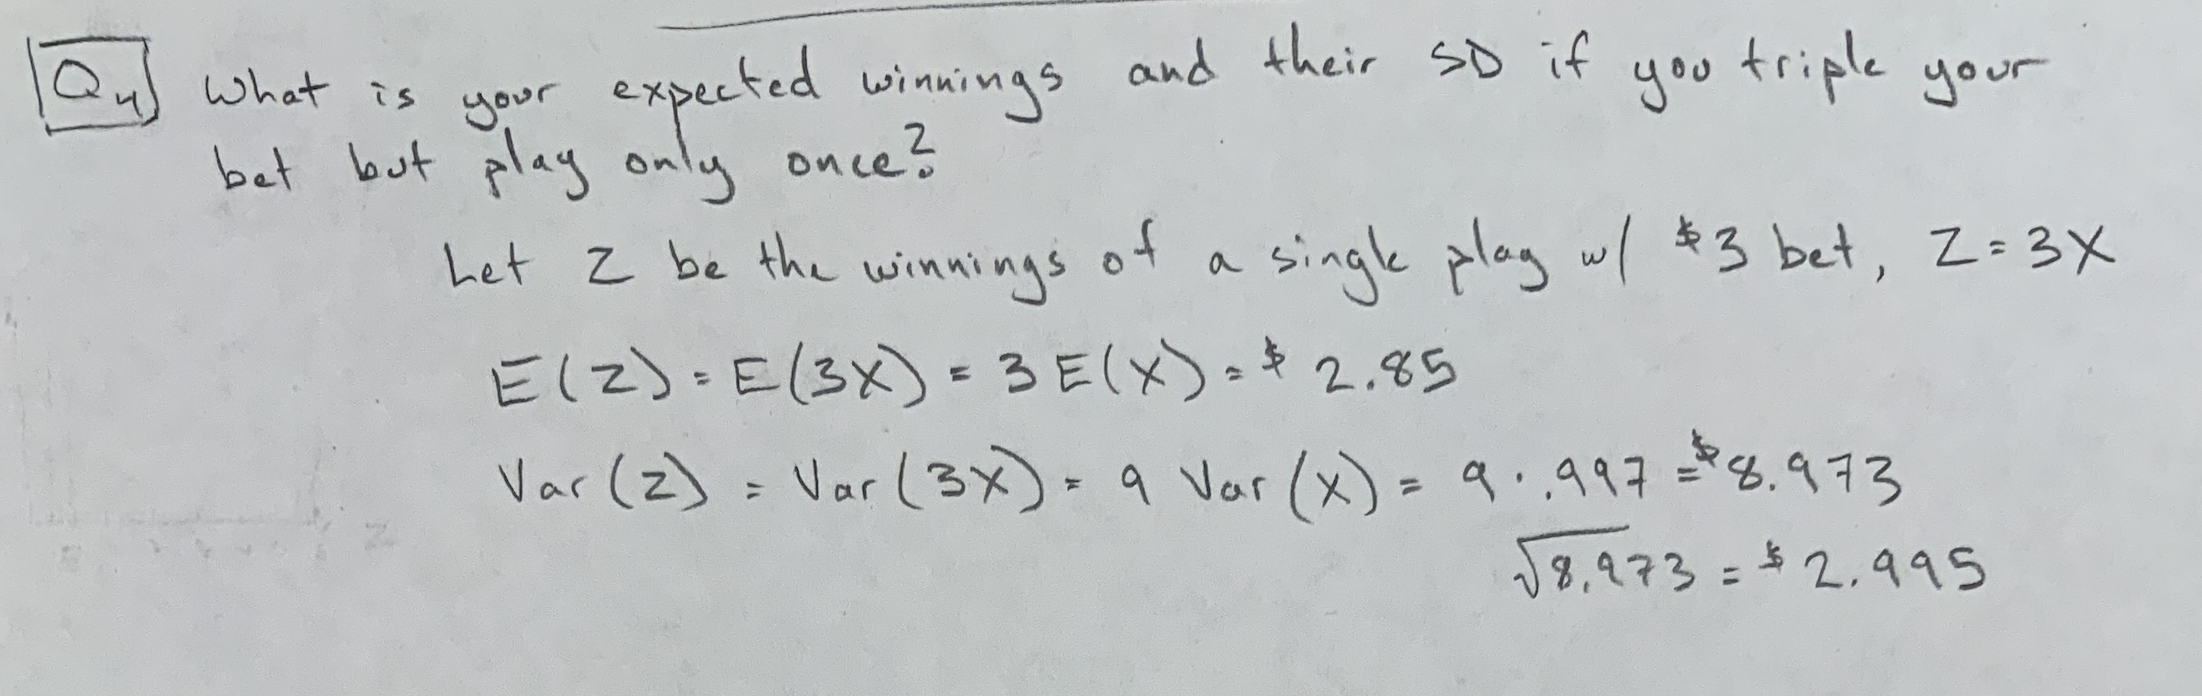 Q4 What is your expected winnings and their SD if you triple your
bet but play only once?
Let Z be the winnings of a single play w/ $3 bet, Z = 3X
E(Z) = E(3X) = 3 E(X) = $ 2.85
Var(Z) = Var(3X) = 9 Var(X) = 9 · .997 = $8.973
√8.973 = $ 2.995